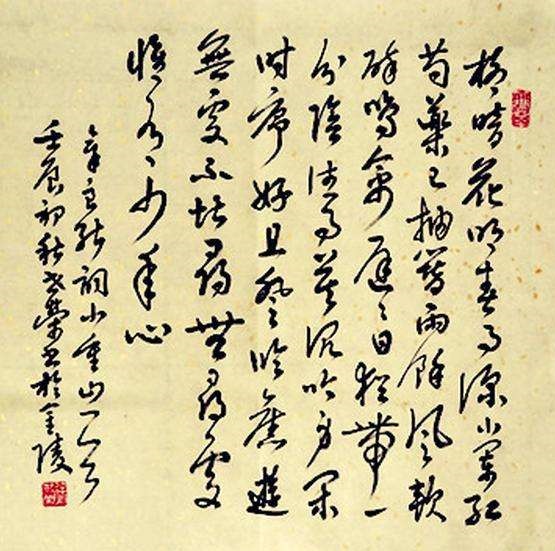 柳暗花明春事深小闌紅
芍藥已抽簪雨餘風軟
碎鳴禽遲〻日猶帶一
分陰往事莫沉吟身閑
时序好且登臨舊遊
無處不堪尋無尋處
惟有少年心
章良能詞小重山一首
壬辰初秋榮書於金陵